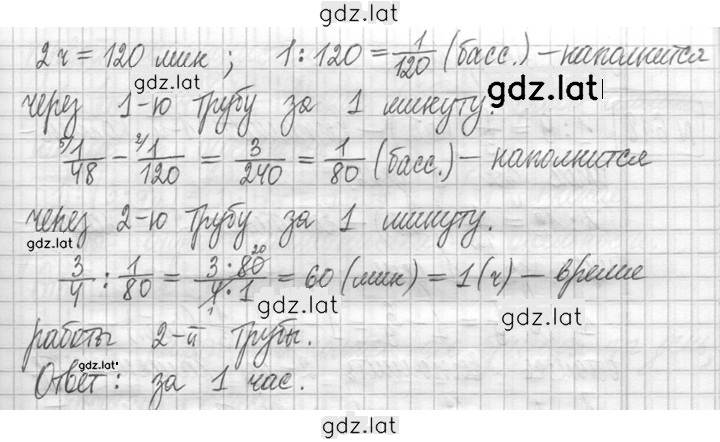 gdz.lat
2 ч = 120 мин ; 1 : 120 = 1/120 (басс.) – наполнится
gdz.lat
через 1-ю трубу за 1 минуту. gdz.lat
5) 1/48 – 2) 1/120 = 3/240 = 1/80 (басс.) – наполнится
через 2-ю трубу за 1 минуту.
gdz.lat
3/4 : 1/80 = 3 · 80 20 / 4 1 · 1 = 60 (мин) = 1 (ч) – время
gdz.lat gdz.lat
работы 2-й трубы.
gdz.lat
Ответ : за 1 час.
gdz.lat